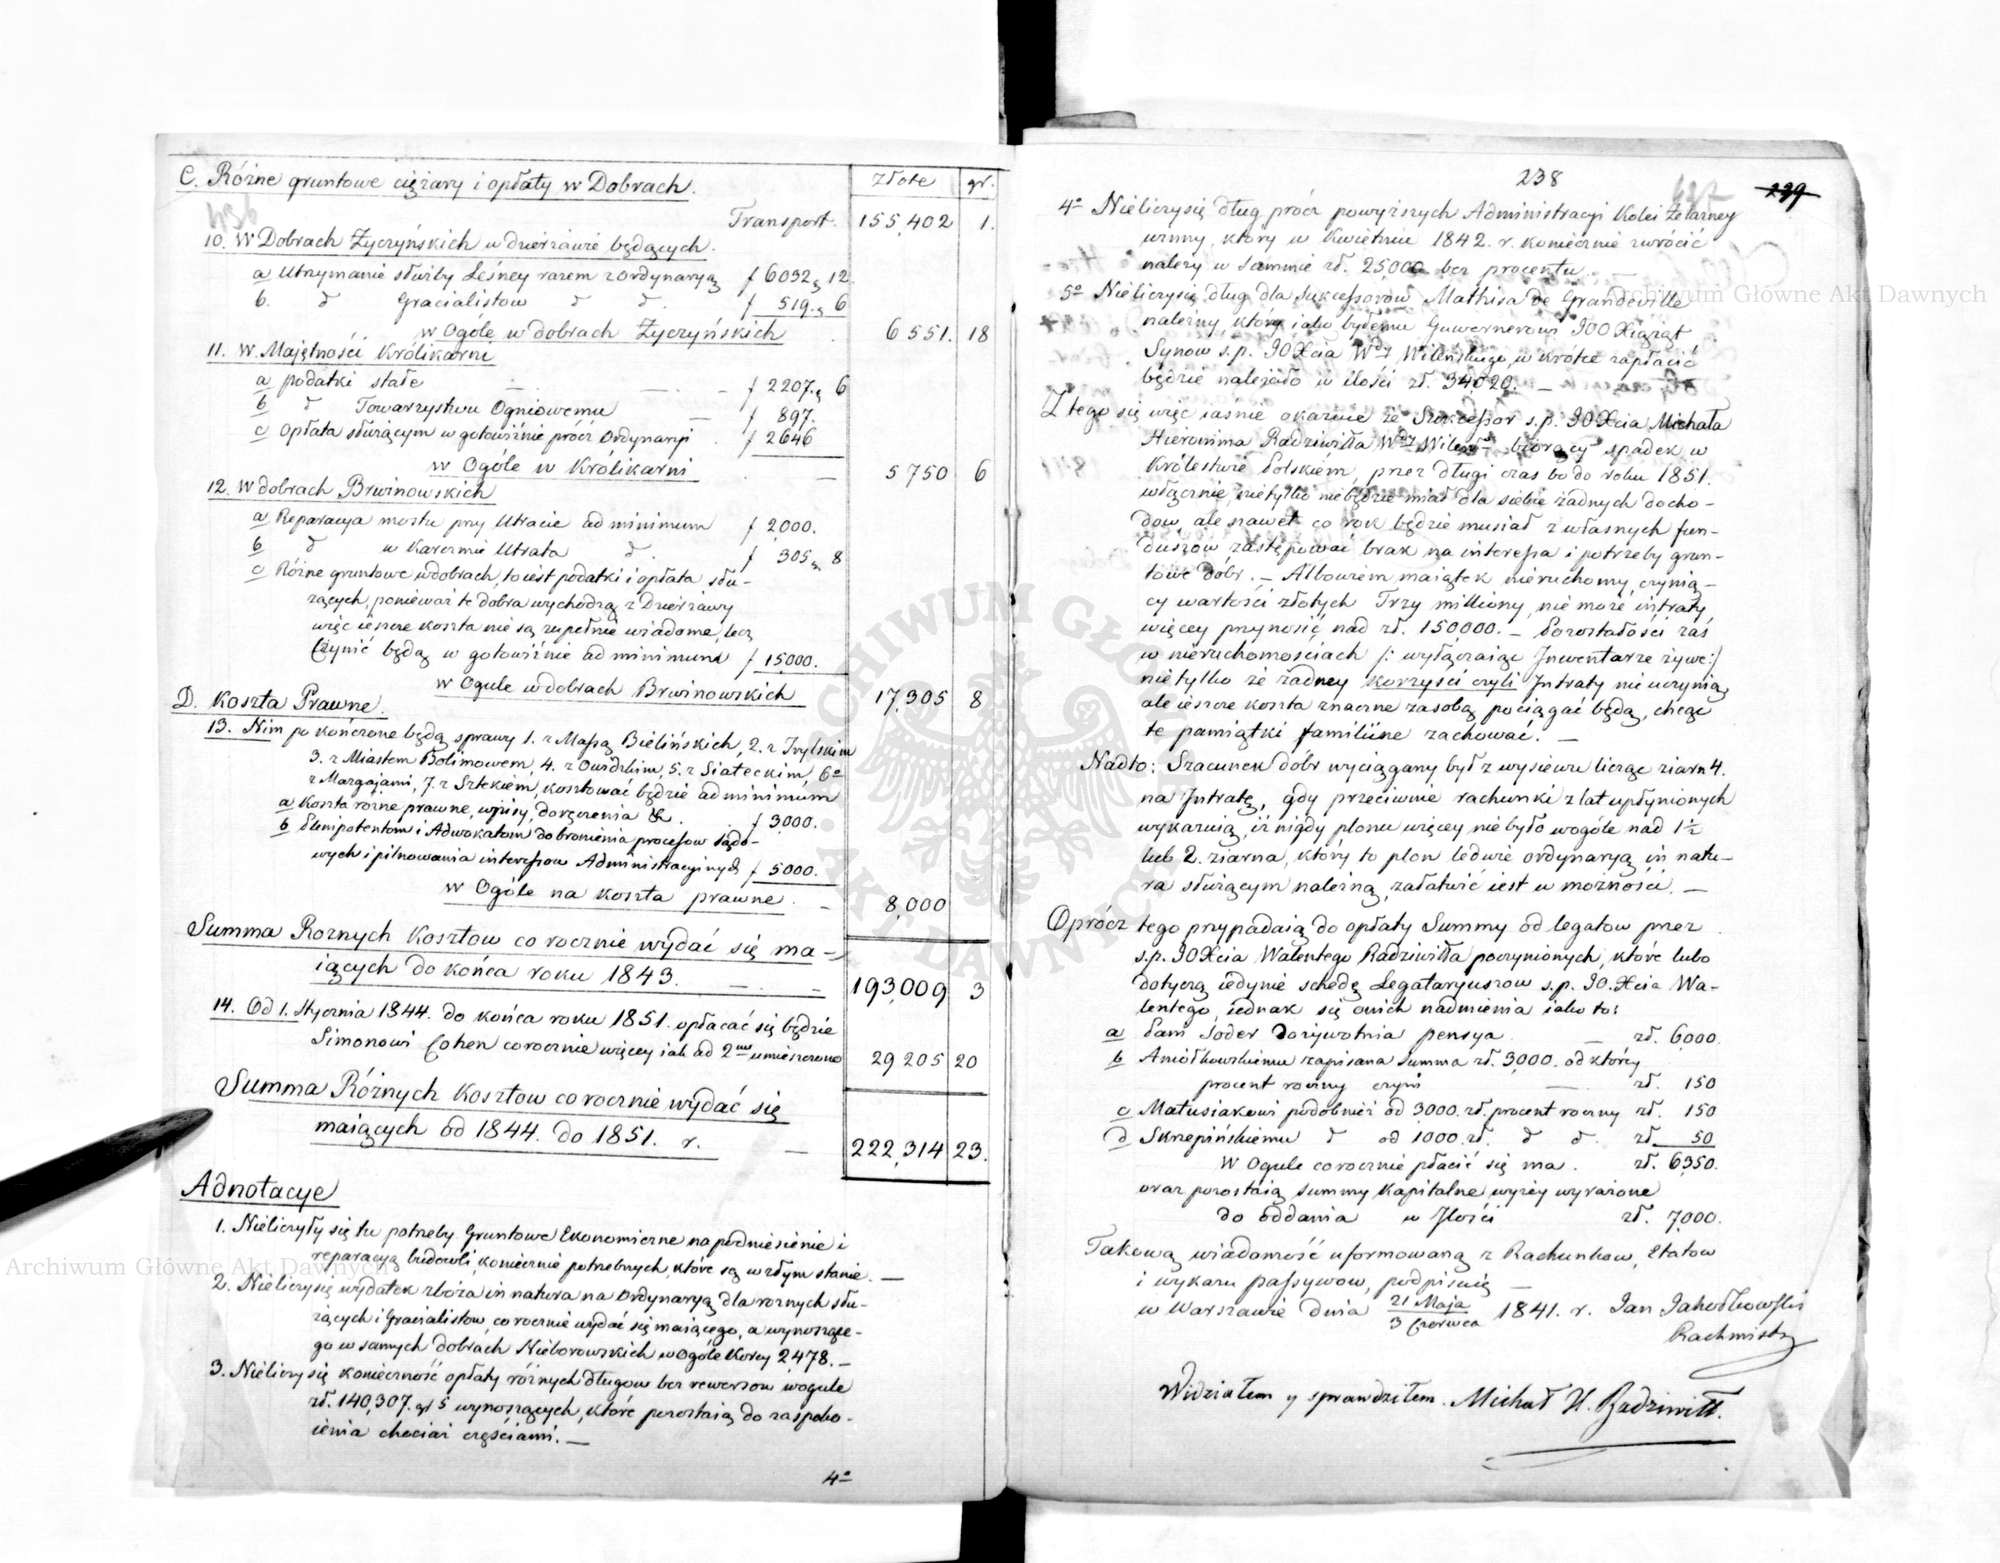 C. Różne gruntowe ciężary i opłaty w Dobrach.
Złote gr.
436
Transport. 155,402 1.
10. W Dobrach Życzyńskich w dzierżawie będących.
a Utrzymanie służby Leśney razem z Ordynaryą f 6032 g 12.
b. d Gracialistow d d. f 519. g 6
w Ogóle w dobrach Życzyńskich 6551. 18
11. W Majętności Królikarni
a podatki stałe — — f 2207. g 6
b d Towarzystwu Ogniowemu — f 897.
c Opłata służącym w gotowiźnie prócz Ordynaryi f 2646
w Ogóle w Królikarni — 5750 6
12. W dobrach Brwinowskich
a Reparacya mostu przy Utracie ad minimum f 2,000.
b d w Karczmie Utrata d. f 305 g 8
c Różne gruntowe w dobrach, to iest podatki i opłata słu-
żących, ponieważ te dobra wychodzą z Dzierżawy
więc ieszcze koszta nie są zupełnie wiadome, lecz
Czynić będą w gotowiźnie ad minimum f 15,000.
w Ogule w dobrach Brwinowskich 17,305 8
D. Koszta Prawne.
13. Nim pokończone będą sprawy 1. z Massą Bielińskich, 2. z
3. z Miastem Bolimowem, 4. z 5. z Siateckim, 6o
z Margajami, 7. z Sztekiem, kosztować będzie ad minimum
a Koszta rożne prawne, wpisy, doręczenia &. f 3,000.
b Plenipotentom i Adwokatom do bronienia processow sądo-
wych i pilnowania interessow Administracyinych f 5000.
w Ogóle na koszta prawne. — 8,000
Summa Rożnych Kosztow co rocznie wydać się ma-
iących do końca roku 1843. — 193,009 3
14. Od 1. Stycznia 1844. do końca roku 1851. opłacać się będzie
Simonowi Cohen corocznie więcey iak ad 2um umieszczono 29205 20
Summa Różnych Kosztow corocznie wydać się
maiących od 1844. do 1851. r. — 222,314 23.
Adnotacye
1. Nieliczyły się tu potrzeby Gruntowe Ekonomiczne na podniesienie i
reparacyą budowli, koniecznie potrzebnych, ktore są w złym stanie. —
2. Nieliczy się wydatek zboża in natura na Ordynaryą dla rożnych słu-
żących i Gracialistow, corocznie wydać się maiącego, a wynoszące-
go w samych dobrach Nieborowskich w Ogóle Korcy 2,478. —
3. Nieliczy się konieczność opłaty różnych długow bez rewersow wogule
zł. 140,307. gr 5 wynoszących, które pozostaią do zaspoko-
ienia chociaż częściami. —
4o
238
239
4o Nieliczy się dług prócz powyższych Administracyi Kolei Żelazney
winny, który w Kwietniu 1842. r. koniecznie zwrócić
należy w summie zł. 25,000 bez procentu. —
5o Nieliczy się dług dla Sukcessorow Mathisa de Grandeville
należny, który iako byłemu Guwernerowi JOO Xiążąt
Synow s.p. JO Xcia Wdy Wileńskiego, w krótce zapłacić
będzie należało w ilości zł. 34,020. —
Z tego się więc iaśnie okazuie że Sukcessor s.p. JO Xcia Michała
Hieronima Radziwiłła Wdy Wileńs. biorący spadek w
Królestwie Polskiem, przez długi czas bo do roku 1851.
włącznie, nietylko niebędzie miał dla siebie żadnych docho-
dow, ale nawet co rok będzie musiał z własnych fun-
duszow zastępować brak na interessa i potrzeby grun-
towe dóbr. — Albowiem maiątek nieruchomy, czynią-
cy wartości złotych Trzy milliony, nie może intraty
więcey przynosić nad zł. 150,000. — Pozostałości zaś
w nieruchomościach /: wyłączaiąc Inwentarze żywe :/
nietylko że żadney korzyści czyli Intraty nie uczynią,
ale ieszcze koszta znaczne za sobą pociągać będą, chcąc
te pamiątki familiine zachować. —
Nadto: Szacunek dóbr wyciągany był z wysiewu licząc ziarn 4.
na Intratę, gdy przeciwnie rachunki z lat upłynionych
wykazuią, iż nigdy plonu więcey nie było wogóle nad 1½
lub 2. ziarna, który to plon ledwie ordynaryą in natu-
ra służącym należną, załatwić iest w możności. —
Oprócz tego przypadaią do opłaty Summy od legatow przez
s.p. JO Xcia Walentego Radziwiłła poczynionych, które lubo
dotyczą iedynie schedę Legataryuszow s.p. JO. Xcia Wa-
lentego, iednak się onich nadmienia iako to:
a Pani Soder Dożywotnia pensya. — zł. 6,000.
b Aniołkowskiemu zapisana Summa zł. 3,000. od którey
procent roczny czyni — zł. 150
c Matusiakowi podobnież od 3,000. zł. procent roczny zł. 150
d Skrzepińskiemu d od 1,000. zł. d d. zł. 50
W Ogule corocznie płacić się ma. zł. 6,350.
oraz pozostaią Summy Kapitalne wyżey wyrażone
do oddania w Ilości zł. 7,000.
Takową wiadomość uformowaną z Rachunkow, Etatow
i wykazu passywow, podpisuię —
w Warszawie dnia 21 Maja / 3 Czerwca 1841. r. Jan Jakołkowski
Rachmistrz
Widziałem y sprawdziłem. Michał H. Radziwiłł.
Archiwum Główne Akt Dawnych
Archiwum Główne Akt Dawnych
ARCHIWUM GŁÓWNE AKT DAWNYCH